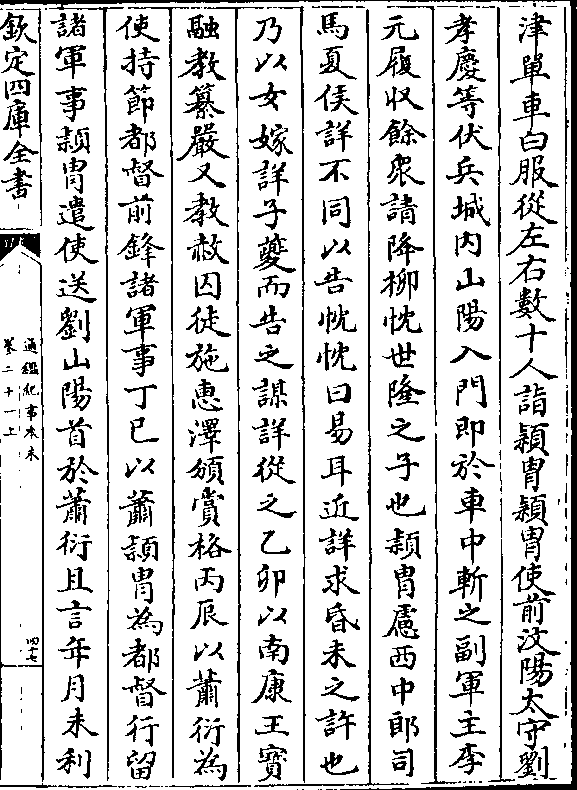 津單車白服從左右數十人詣穎胄穎胄使前汶陽太守劉
孝慶等伏兵城内山陽入門即於車中斬之副軍主李
元履収餘衆請降柳忱世隆之子也穎胄慮西中郎司
馬夏侯詳不同以告忱忱曰易耳近詳求昏未之許也
乃以女嫁詳子夔而告之謀詳從之乙卯以南康王寳
融教纂嚴又教赦囚徒施惠澤頒賞格丙辰以蕭衍為
使持節都督前鋒諸軍事丁巳以蕭穎胄為都督行留
諸軍事穎胄遣使送劉山陽首於蕭衍且言年月未利
欽定四庫全書
通鑑紀事本末
卷二十一上
四十七